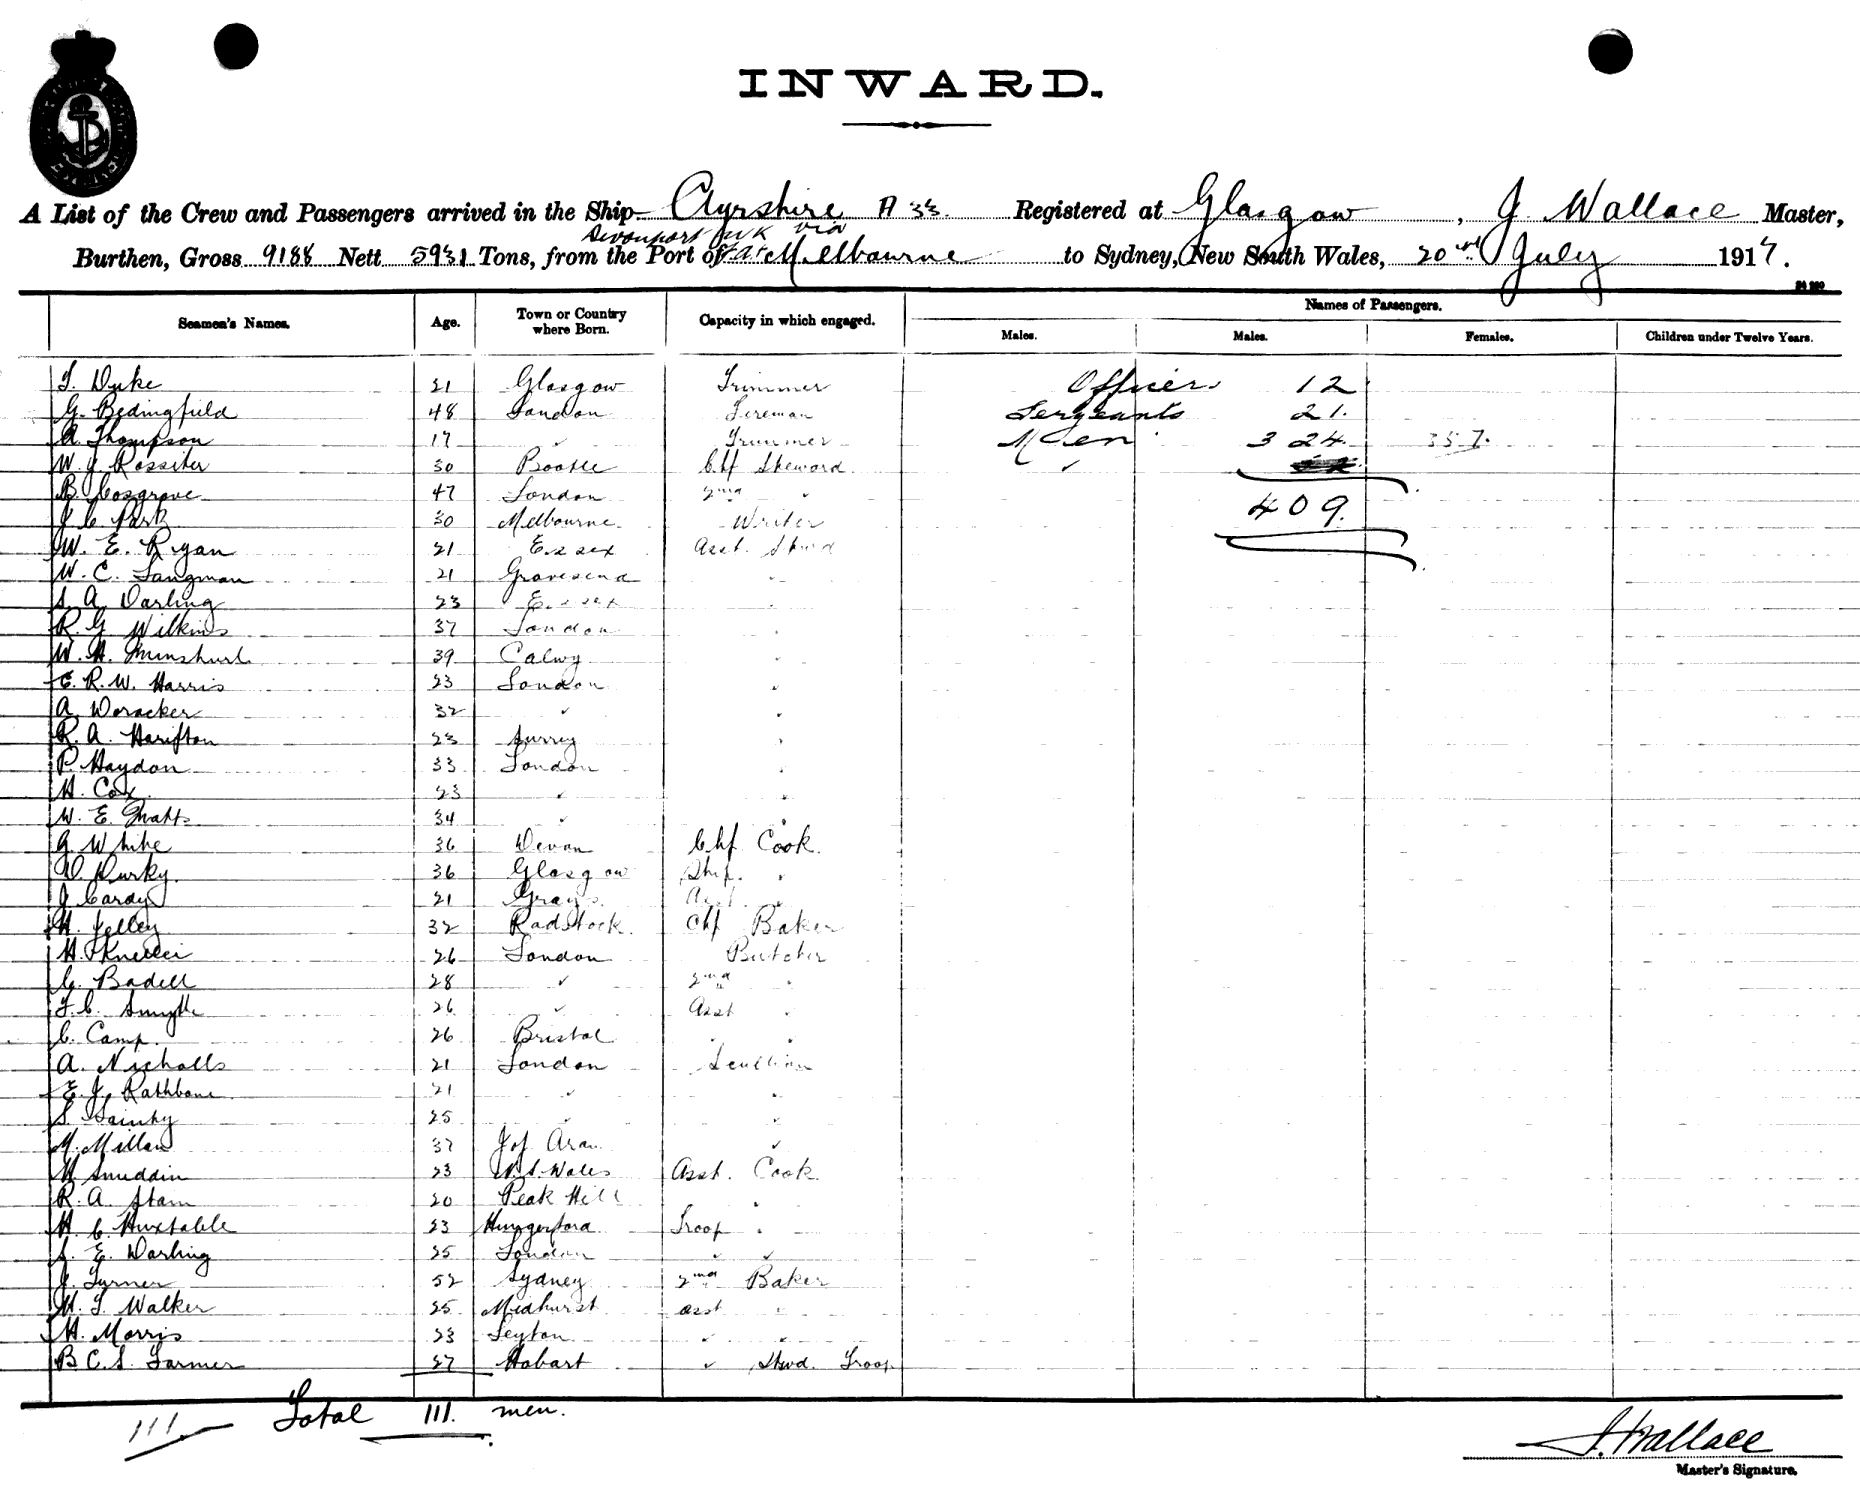 INWARD.
A List of the Crew and Passengers arrived in the Ship Ayrshire A 33. Registered at Glasgow, J. Wallace Master,
Devonport UK via
Burthen, Gross 9188 Nett 5931 Tons, from the Port of Melbourne to Sydney, New South Wales, 20 July 1917.
Seamen's Names. Age. Town or Country where Born. Capacity in which engaged. Names of Passengers.
Males. Males. Females. Children under Twelve Years.
T. Duke 21 Glasgow Trimmer Officers 12
G. Bedingfield 48 London Fireman Sergeants 21.
A. Thompson 17 " Trimmer Men 324 357.
W. J. Rossiter 30 Bootle Chf Steward
B. Cosgrove 47 London 2nd " 409.
J. C. Park 30 Melbourne Writer
W. E. Ryan 21 Essex Asst. Stwd
W. C. Langman 21 Gravesend "
S. A. Darling 23 Essex "
R. G. Wilkins 37 London "
W. H. Minshurl 39 Calwy "
E. R. W. Harris 23 London "
A. Woracker 32 " "
R. A. Harifton 23 Surrey "
P. Haydon 33 London "
H. Cox 23 " "
W. E. Matts 34 " "
G. White 36 Devon Chf Cook.
D. Durky. 36 Glasgow Ship. "
J. Cardy 21 Grays. Asst. "
H. Jelley 32 Radstock. Chf Baker
H. 26 London Butcher
G. Badell 28 " 2nd "
F. C. Smyth 26 " Asst "
C. Camp. 26 Bristol " "
A. Nicholls 21 London Scullion
E. J. Rathbone 21 " "
S. 25 " "
M. Millan 37 J of Aran "
H. Smeddin 23 N. S. Wales Asst. Cook
R. A. Stam 20 Peak Hill "
H. C. Huxtable 23 Hungerford Troop "
S. E. Darling 25 London " "
J. Turner 52 Sydney 2nd Baker
H. T. Walker 25 Midhurst asst "
H. Morris 23 Leyton " "
B. C. S. Farmer 27 Hobart " Stwd. Troop
111. Total 111. men.
J. Wallace
Master's Signature.